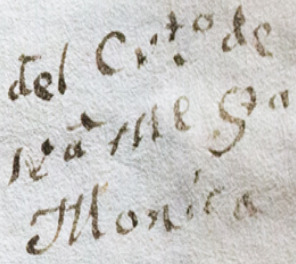 del Cvto de
Na Me Sta
Monica